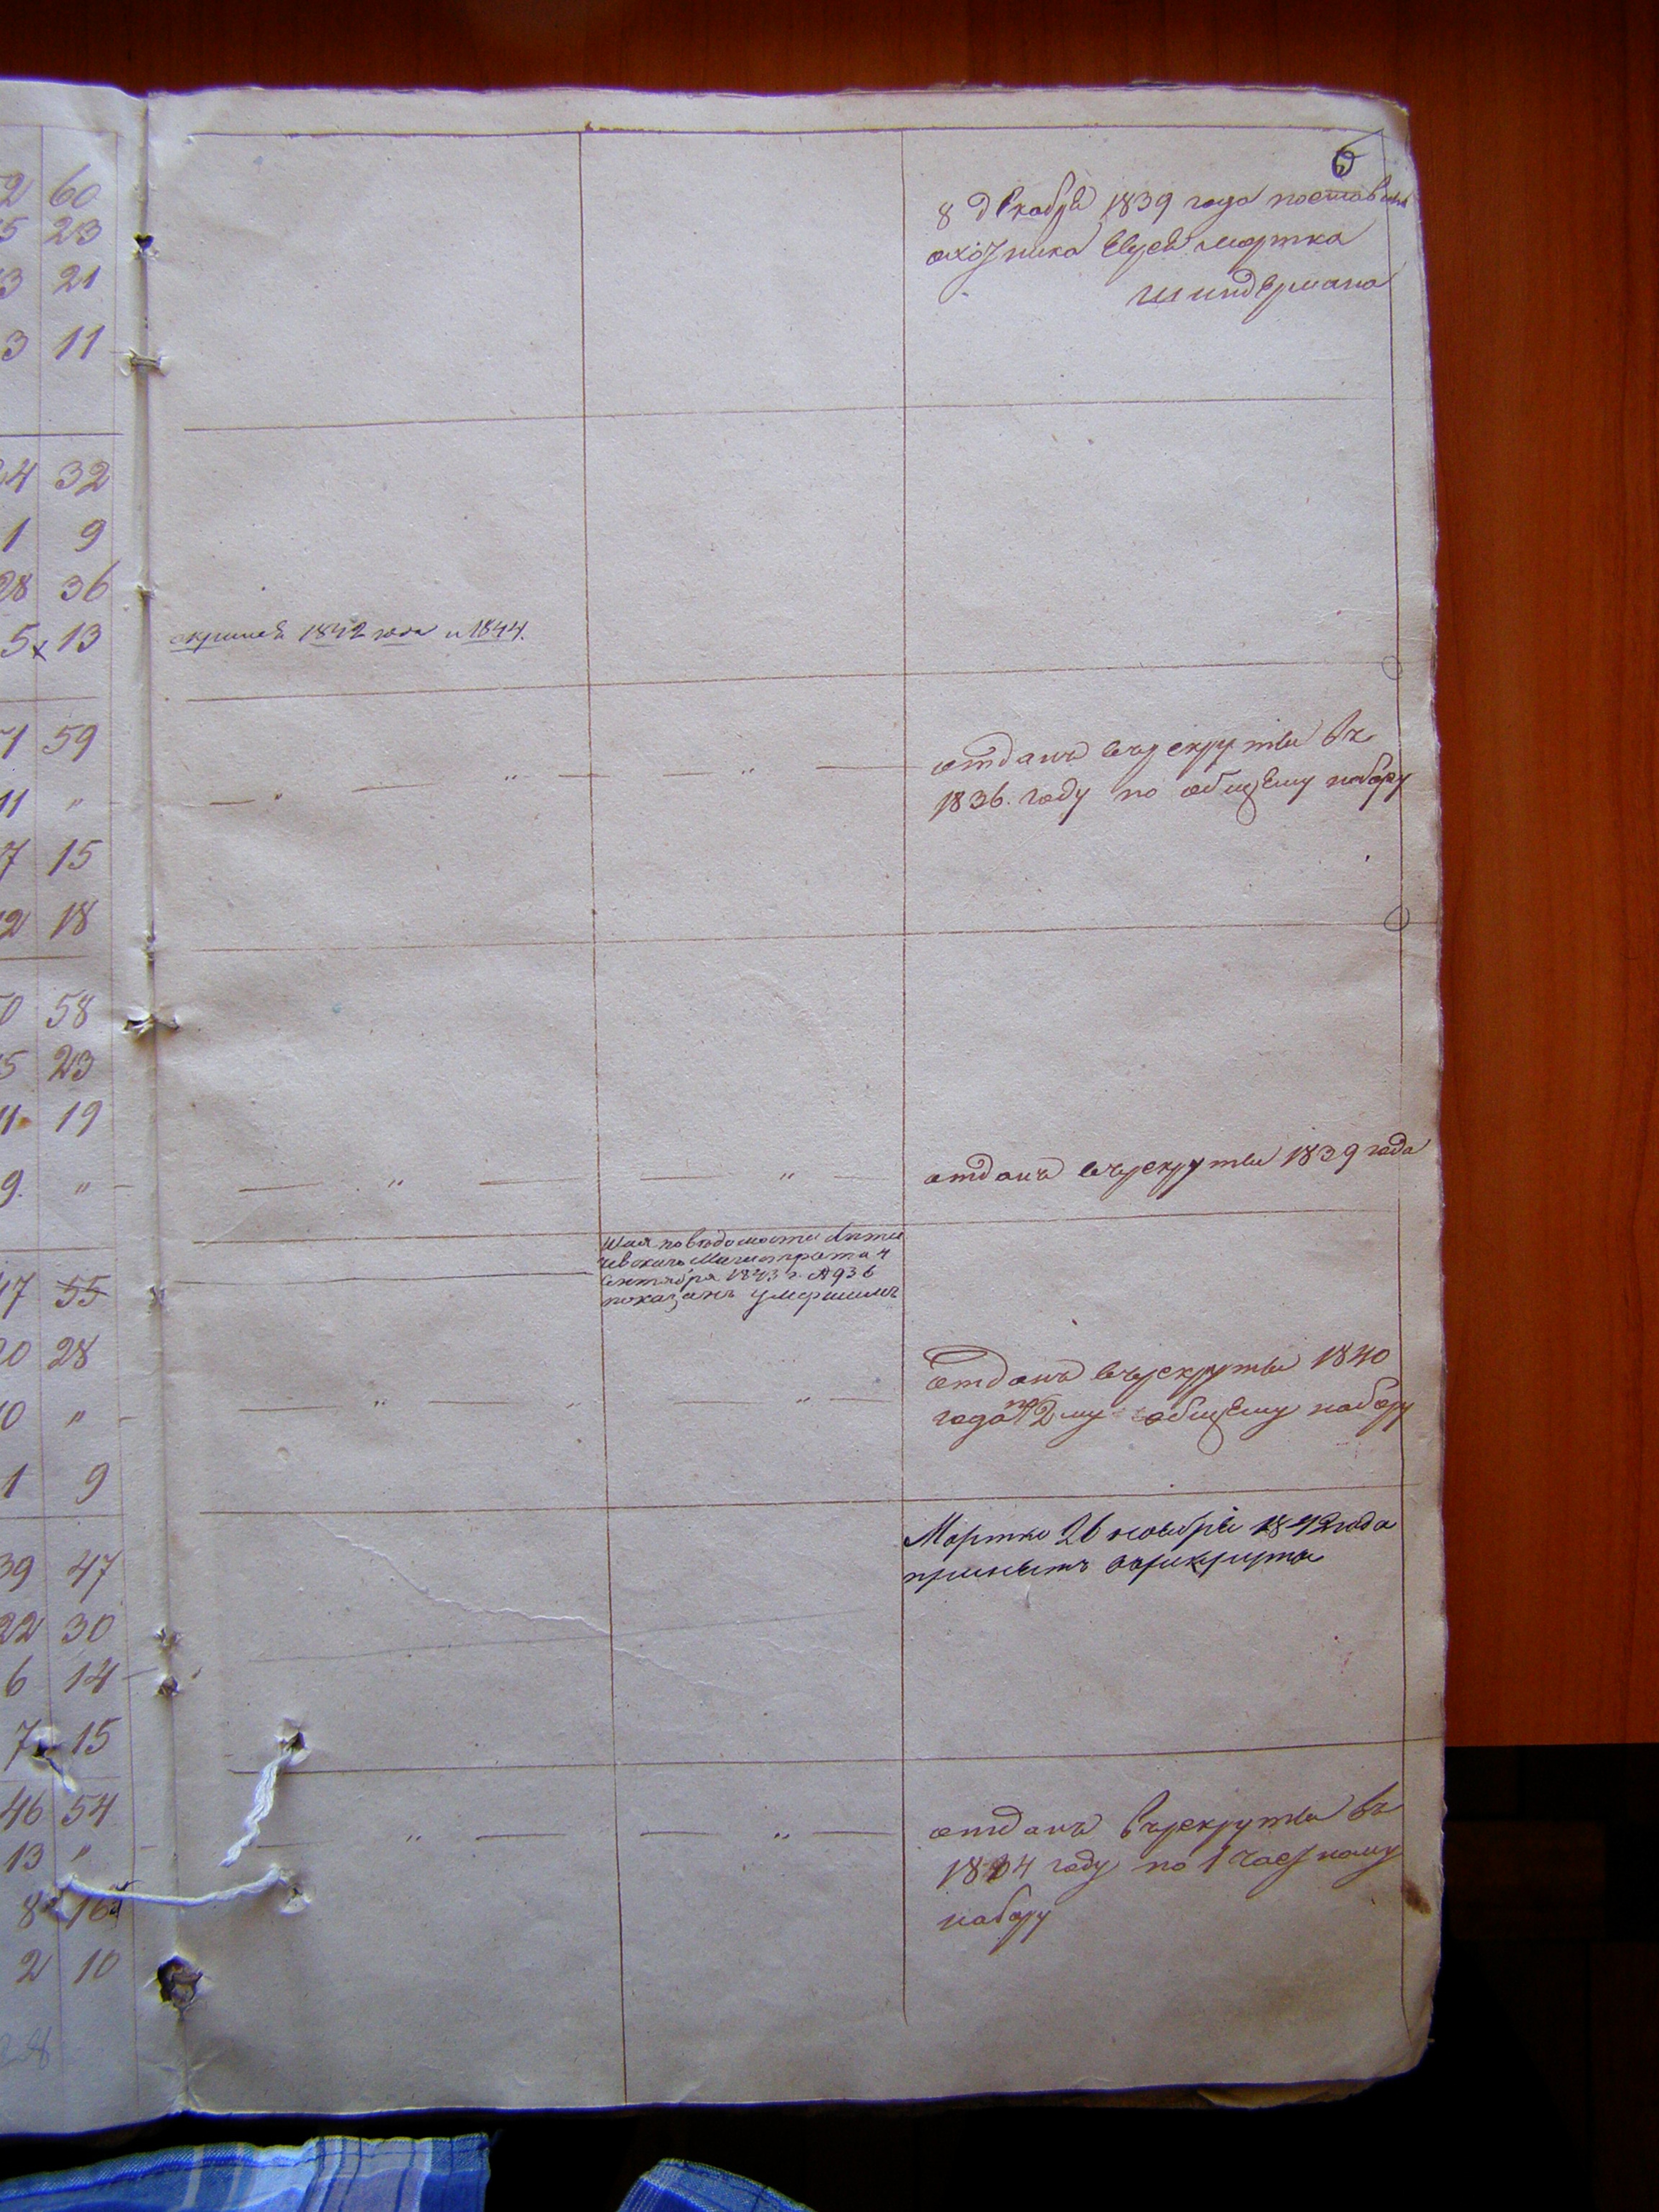 6
2 60
5 23
3 21
3 11
8 декабря 1839 года поставленъ
охотника Евсей Мортка
Шиндермана
4 32
1 9
28 36
5 x 13
1842 года и 1844.
1 59
11 "
7 15
2 18
— " — " — — " —
отданъ въ рекруты въ
1836. году по общему набору
0 58
5 23
11 19
9. "
— " — — " —
отданъ въ рекруты 1839 года
Шая по ведомости Лети
чевскаго Магистрата 4
Сентября 1843 г. № 936
показанъ умершимъ
17 55
20 28
10 "
1 9
— " — " — " —
отданъ въ рекруты 1840
года по 2му общему набору
Мортко 26 ноября 1842 года
принятъ в рекруты
39 47
22 30
6 14
7 15
46 54
13 "
8 16
2 10
— " — — " —
отданъ въ рекруты въ
1834 году по 1 частному
набору